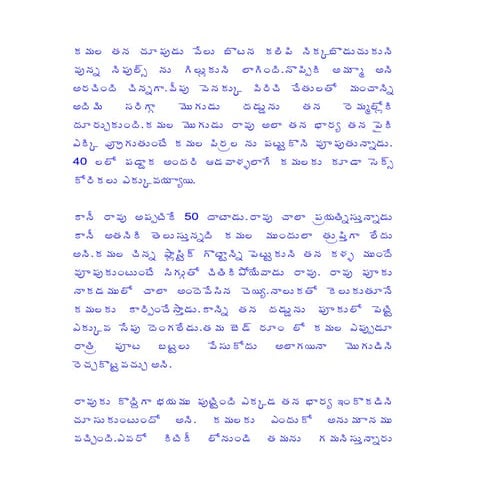 కమల తన చూపుడు వేలు బొటన కలిపి నిక్కబొడుచుకుని
వున్న నిపుల్స్ ను గిల్లుకుని లాగింది.నొప్పికి అమ్మా అని
అరచింది చిన్నగా.వీపు వెనక్కు విరిచి చేతులతో మంచాన్ని
అదిమి సరిగ్గా మొగుడు దడ్డును తన రెమ్మల్లోకి
దూర్చుకుంది.కమల మొగుడు రావు అలా తన భార్య తన పైకి
ఎక్కి వ్రూగుతుంటే కమల పిర్రల ను పట్టుకొని వూపుతున్నాడు.
40 లలో పడ్డాక అందరి ఆడవాళ్ళలాగే కమలకు కూడా సెక్స్
కోరికలు ఎక్కువయ్యాయి.

కానీ రావు అప్పటికే 50 దాటాడు.రావు చాలా ప్రయత్నిస్తున్నాడు
కానీ అతనికి తెలుస్తున్నది కమల ముందులా త్రుప్తిగా లేదు
అని.కమల చిన్న ప్లాస్టిక్ గొట్టాన్ని పెట్టుకుని తన కళ్ళ ముందే
వూపుకుంటుంటే సిగ్గుతో చితికిపోయేవాడు రావు. రావు పూకు
నాకడములో చాలా అందెవేసిన చెయ్యి.నాలుకతో కెలుకుతూనే
కమలకు కార్పించేస్తాడు.కాన్ని తన దడ్డును పూకులో పెట్టి
ఎక్కువ సేపు దెంగలేడు.తమ బెడ్ రూం లో కమల ఎప్పుడూ
రాత్రి పూట బట్టలు వేసుకోదు అలాగయినా మొగుడిని
రెచ్చకొట్టవచ్చు అని.

రావుకు కొద్దిగా భయము పుట్టింది ఎక్కడ తన భార్య ఇంకొకడిని
చూసుకుంటుందో అని. కమలకు ఎందుకో అనుమానము
వచ్చింది.ఎవరో కిటికీ లోనుండి తమను గమనిస్తున్నారు